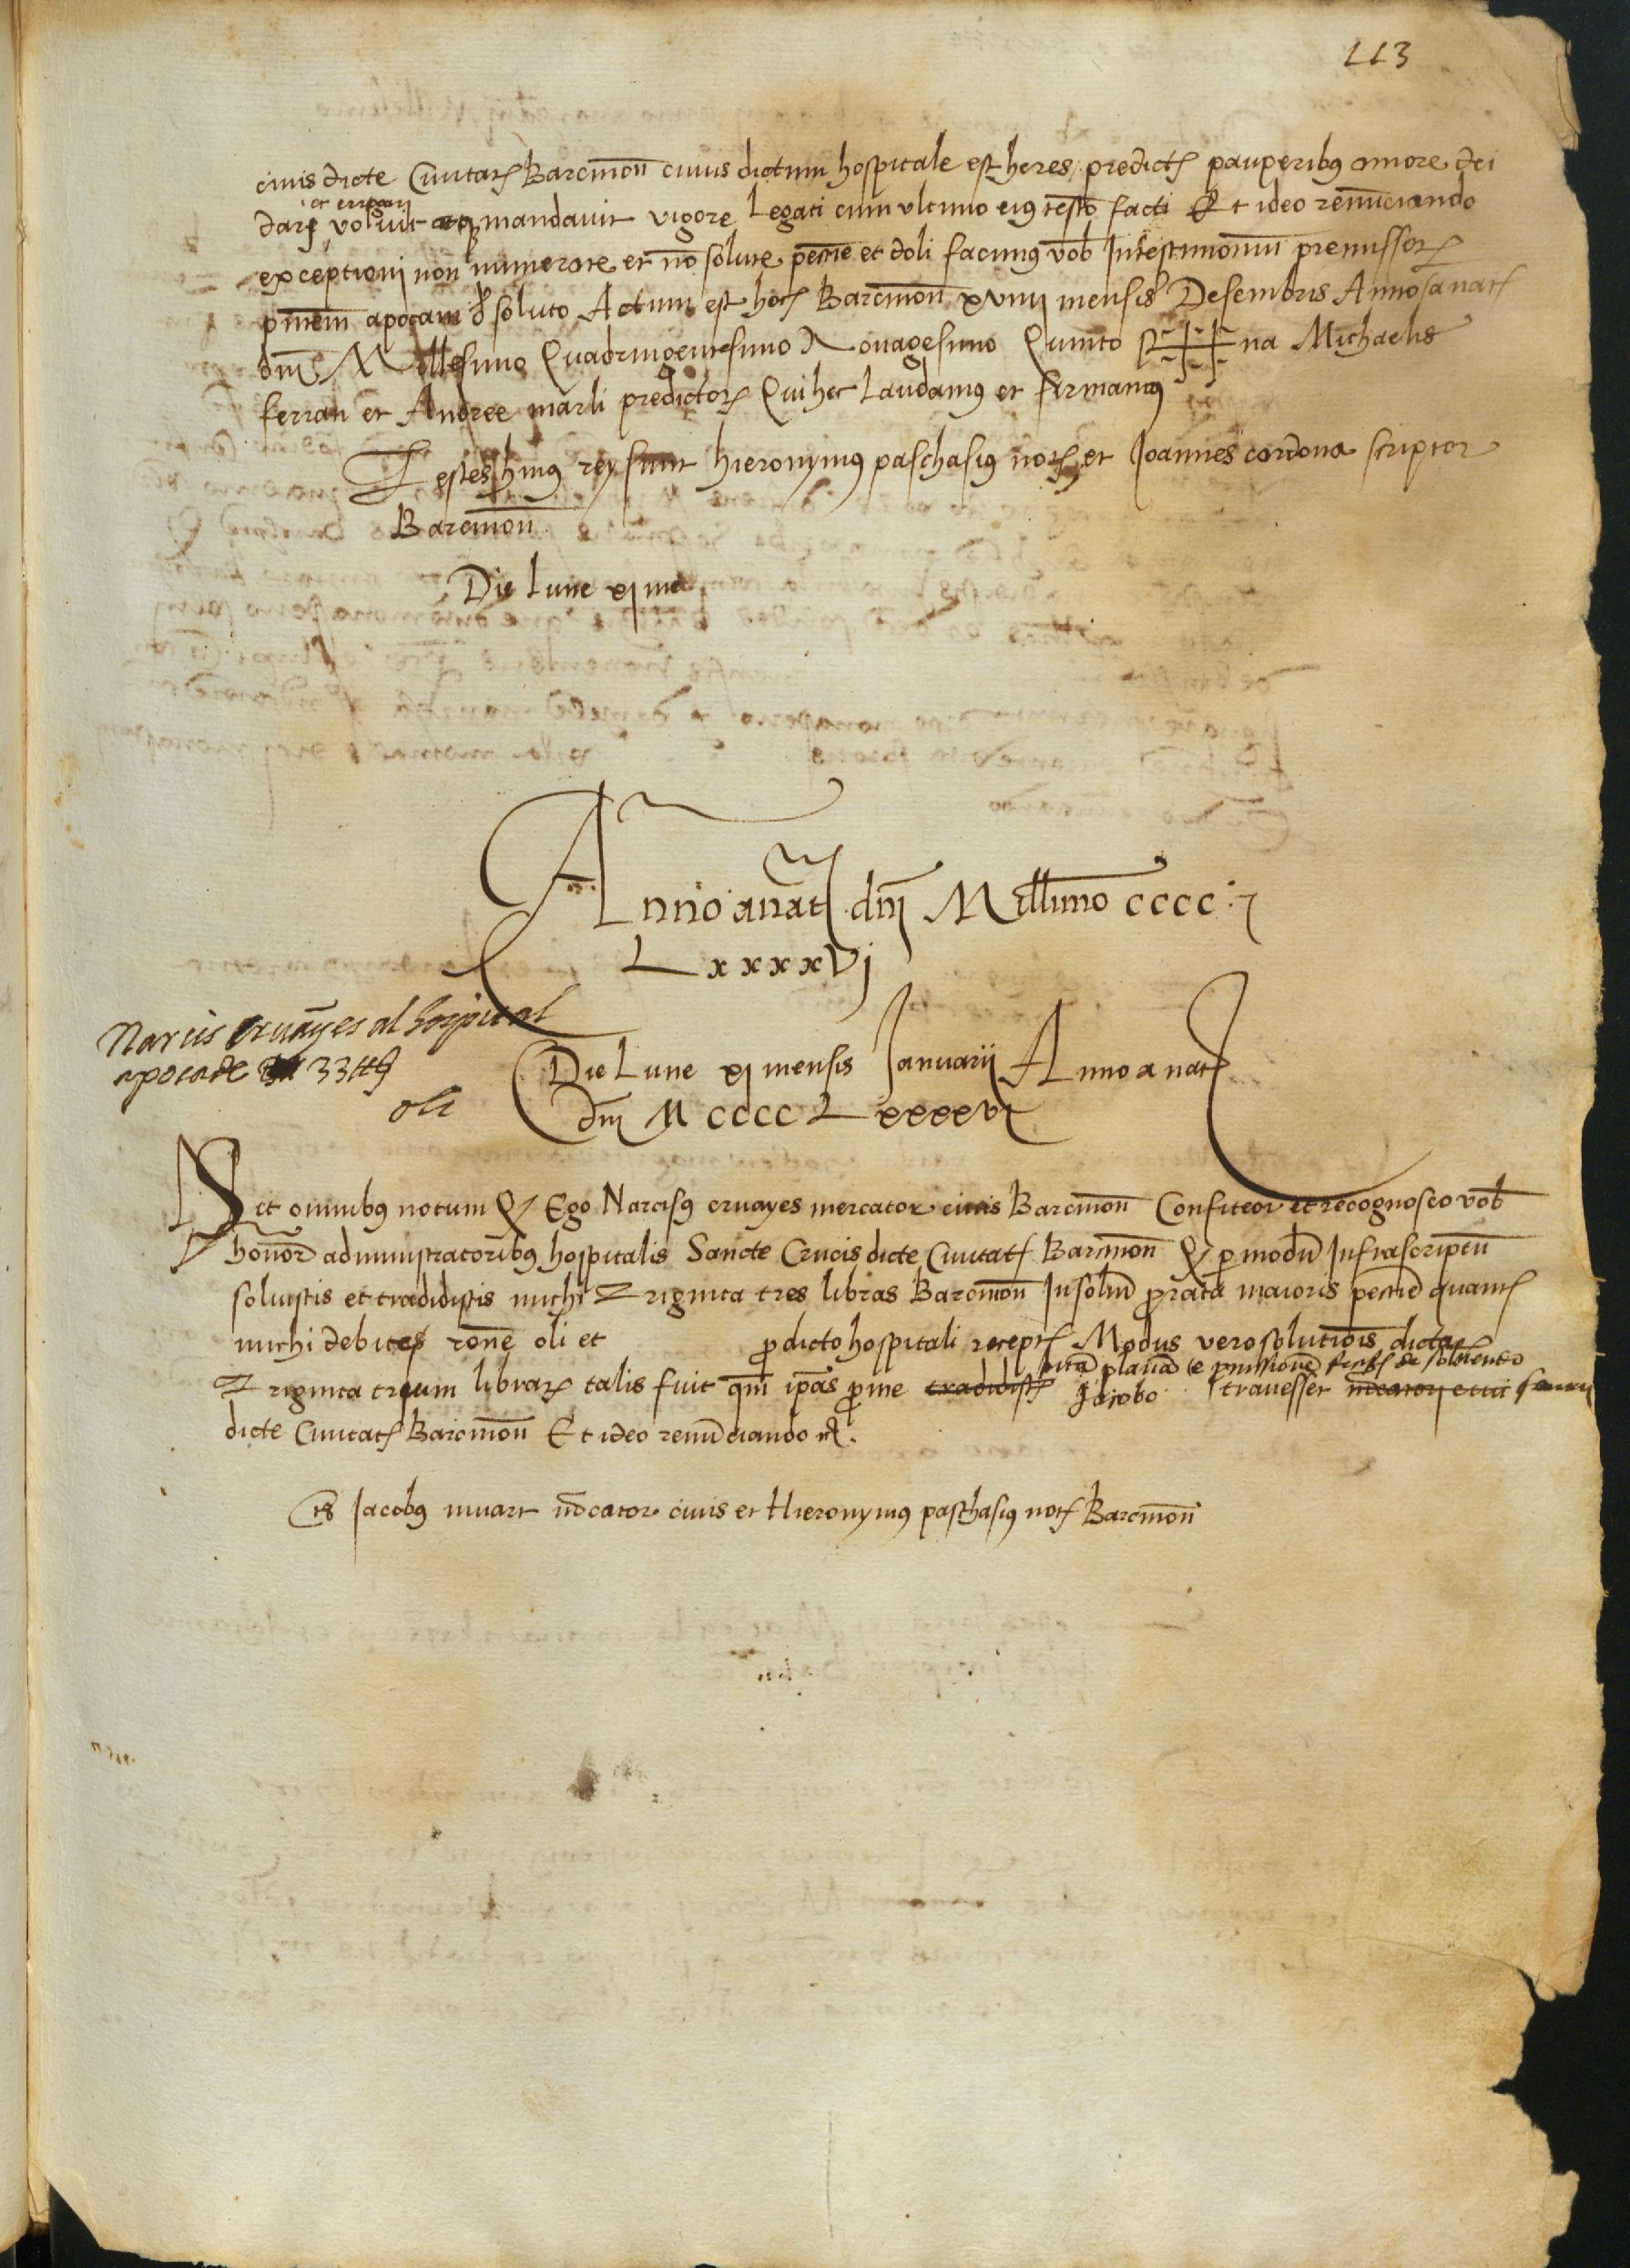 113
civis dicte Civitatis Barcinon̄ cuius dictum hospitale est heres predictis pauperibus amore dei
et errogari
dare voluit atq; mandavit vigore Legati cum ultimo eius testō facti Et ideo renūciando
exceptioni non numerate et nō solute peccūie et doli facimus vob̄ Intestimonium premissorum
p̄ntem apocam d̄ soluto Actum est hoc Barcinon̄ xviiij mensis Desembris Anno a nat
dnī Millesimo Quadringentesimo Nonagesimo Quinto Sig++na Michaelis
ferran et Andree marli predictorum Qui hec Laudamus et firmamus
Testes huius rey sunt hieronymus paschasius not et Joannes cardona scriptor
Barcinon̄
Die Lune xj me
Anno a nat dnī Millimo cccc
Lxxxxvj
Narcis cruayes al hospital
apoca de 33 ℔
oli
Die Lune xj mensis Januarij Anno a nat
dnī M cccc Lxxxxvi
Sit omnibus notum Q Ego Narcisus cruayes mercator civis Barcinon̄ Confiteor et recognosco vob̄
honor administratoribus hospitalis Sancte Crucis dicte Civitatis Barcinon̄ Q p modū Infrascriptū
solvistis et tradidistis michi Triginta tres libras Barcinon̄ In solutū prorata maioris peccūie quantis
michi debites ronē oli et p dicto hospitali recepti Modus vero solutionis dictarum
Triginta trium librarum talis fuit qm̄ ipas p me tradidistis Jacobo travesser
dicte Civitatis Barcinon̄ Et ideo renūciando &c.
ts Jacobus muart mercator civis et Hieronymus paschasius not Barcinon̄